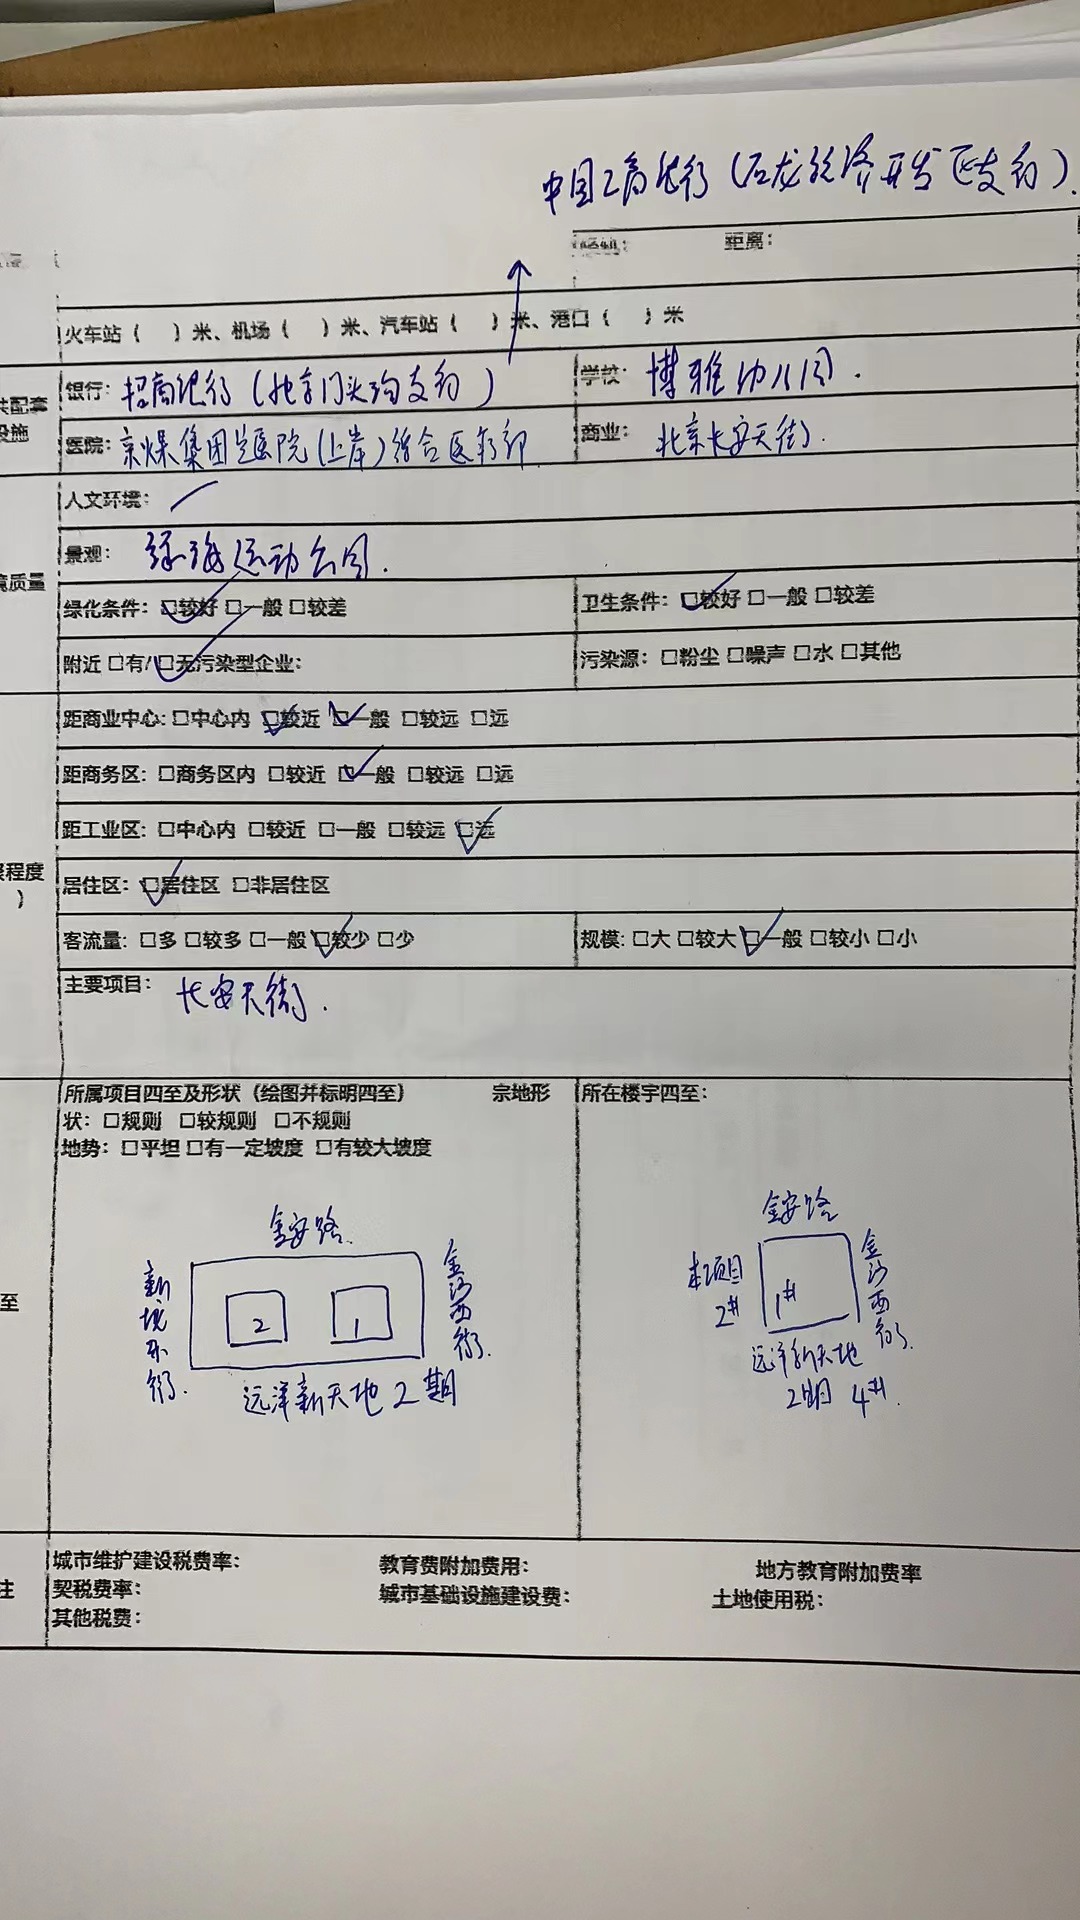 中国工商银行（石龙经济开发区支行）.
距离：
火车站（ ）米、机场（ ）米、汽车站（ ）米、港口（ ）米
共配套
设施
银行：招商银行（北京门头沟支行）
学校：博雅幼儿园.
医院：京煤集团总医院（上岸）综合医疗部
商业：北京长安天街.
人文环境：
境质量
景观：绿海运动公园.
绿化条件：□较好 □一般 □较差
卫生条件：□较好 □一般 □较差
附近 □有/□无污染型企业：
污染源：□粉尘 □噪声 □水 □其他
距商业中心：□中心内 □较近 □一般 □较远 □远
距商务区：□商务区内 □较近 □一般 □较远 □远
距工业区：□中心内 □较近 □一般 □较远 □远
展程度
）
居住区：□居住区 □非居住区
客流量：□多 □较多 □一般 □较少 □少
规模：□大 □较大 □一般 □较小 □小
主要项目：长安天街.
所属项目四至及形状（绘图并标明四至） 宗地形
状：□规则 □较规则 □不规则
地势：□平坦 □有一定坡度 □有较大坡度
金安路
新城东街.
2
1
金沙西街.
远洋新天地2期
所在楼宇四至：
金安路
本项目
2#
1#
金沙西街.
远洋新天地
2期 4#.
至
注
城市维护建设税费率： 教育费附加费用： 地方教育附加费率
契税费率： 城市基础设施建设费： 土地使用税：
其他税费：